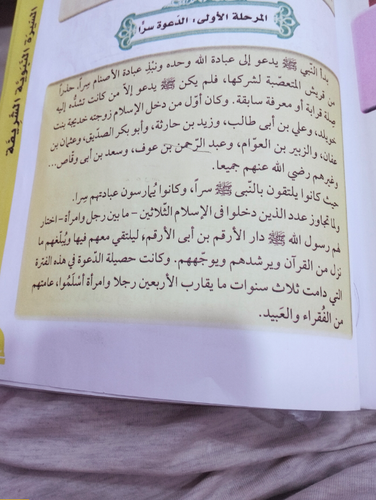 السيرة النبوية الشريفة
المرحلة الأولى: الدعوة سرًا
بدأ النّبي ﷺ يدعو إلى عبادة الله وحده ونبْذِ عبادة الأصنام سِراً، حذراً
من قريش المتعصّبة لشركها، فلم يكن ﷺ يدعو إلاّ من كانت تشدُّه إليه
صلة قرابة أو معرفة سابقة. وكان أوّل من دخل الإسلام زوجته خديجة بنت
خويلد، وعلي بن أبى طالب، وزيد بن حارثة، وأبو بكر الصدّيق، وعثمان بن
عفان، والزبير بن العوّام، وعبد الرّحمن بن عوف، وسعد بن أبى وقاص...
وغيرهم رضي الله عنهم جميعا.
حيث كانوا يلتقون بالنّبي ﷺ سراً، وكانوا يُمارسون عبادتهم سِرا.
ولما تجاوز عدد الذين دخلوا فى الإسلام الثلاثين - ما بين رجل وامرأة - اختار
لهم رسول الله ﷺ دار الأرقم بن أبى الأرقم، ليلتقي معهم فيها ويُبلّغهم ما
نزل من القرآن ويرشدهم ويوجّههم. وكانت حصيلة الدّعوة في هذه الفترة
التي دامت ثلاث سنوات ما يقارب الأربعين رجلا وامرأة أسْلَمُوا، عامتهم
من الفُقراء والعَبيد.